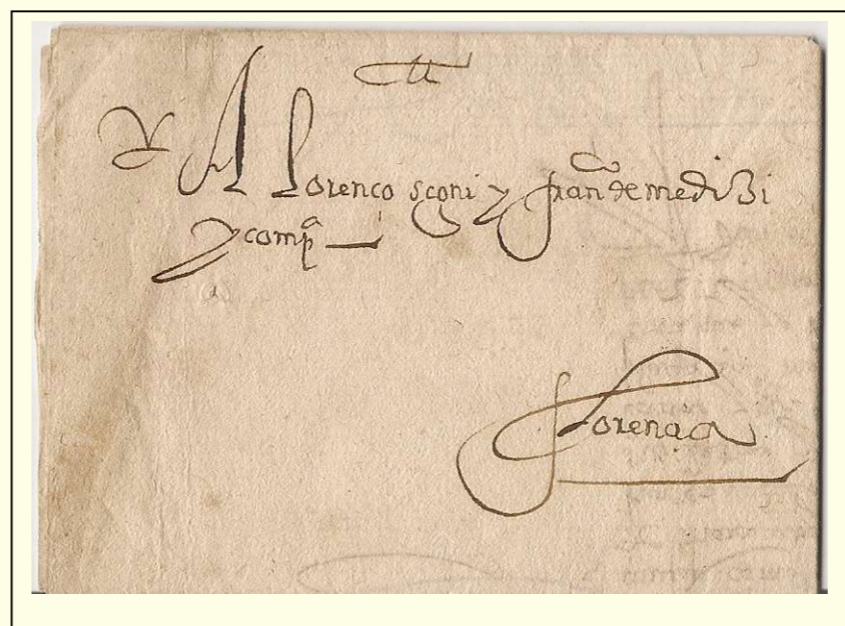 A lorenco sconi y fran^co de medizi
y comp^a
florencia